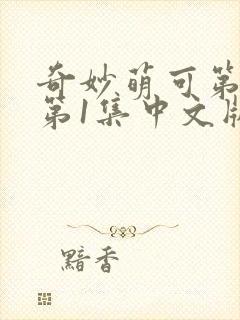 奇妙萌可第
第1集中文版
黯香